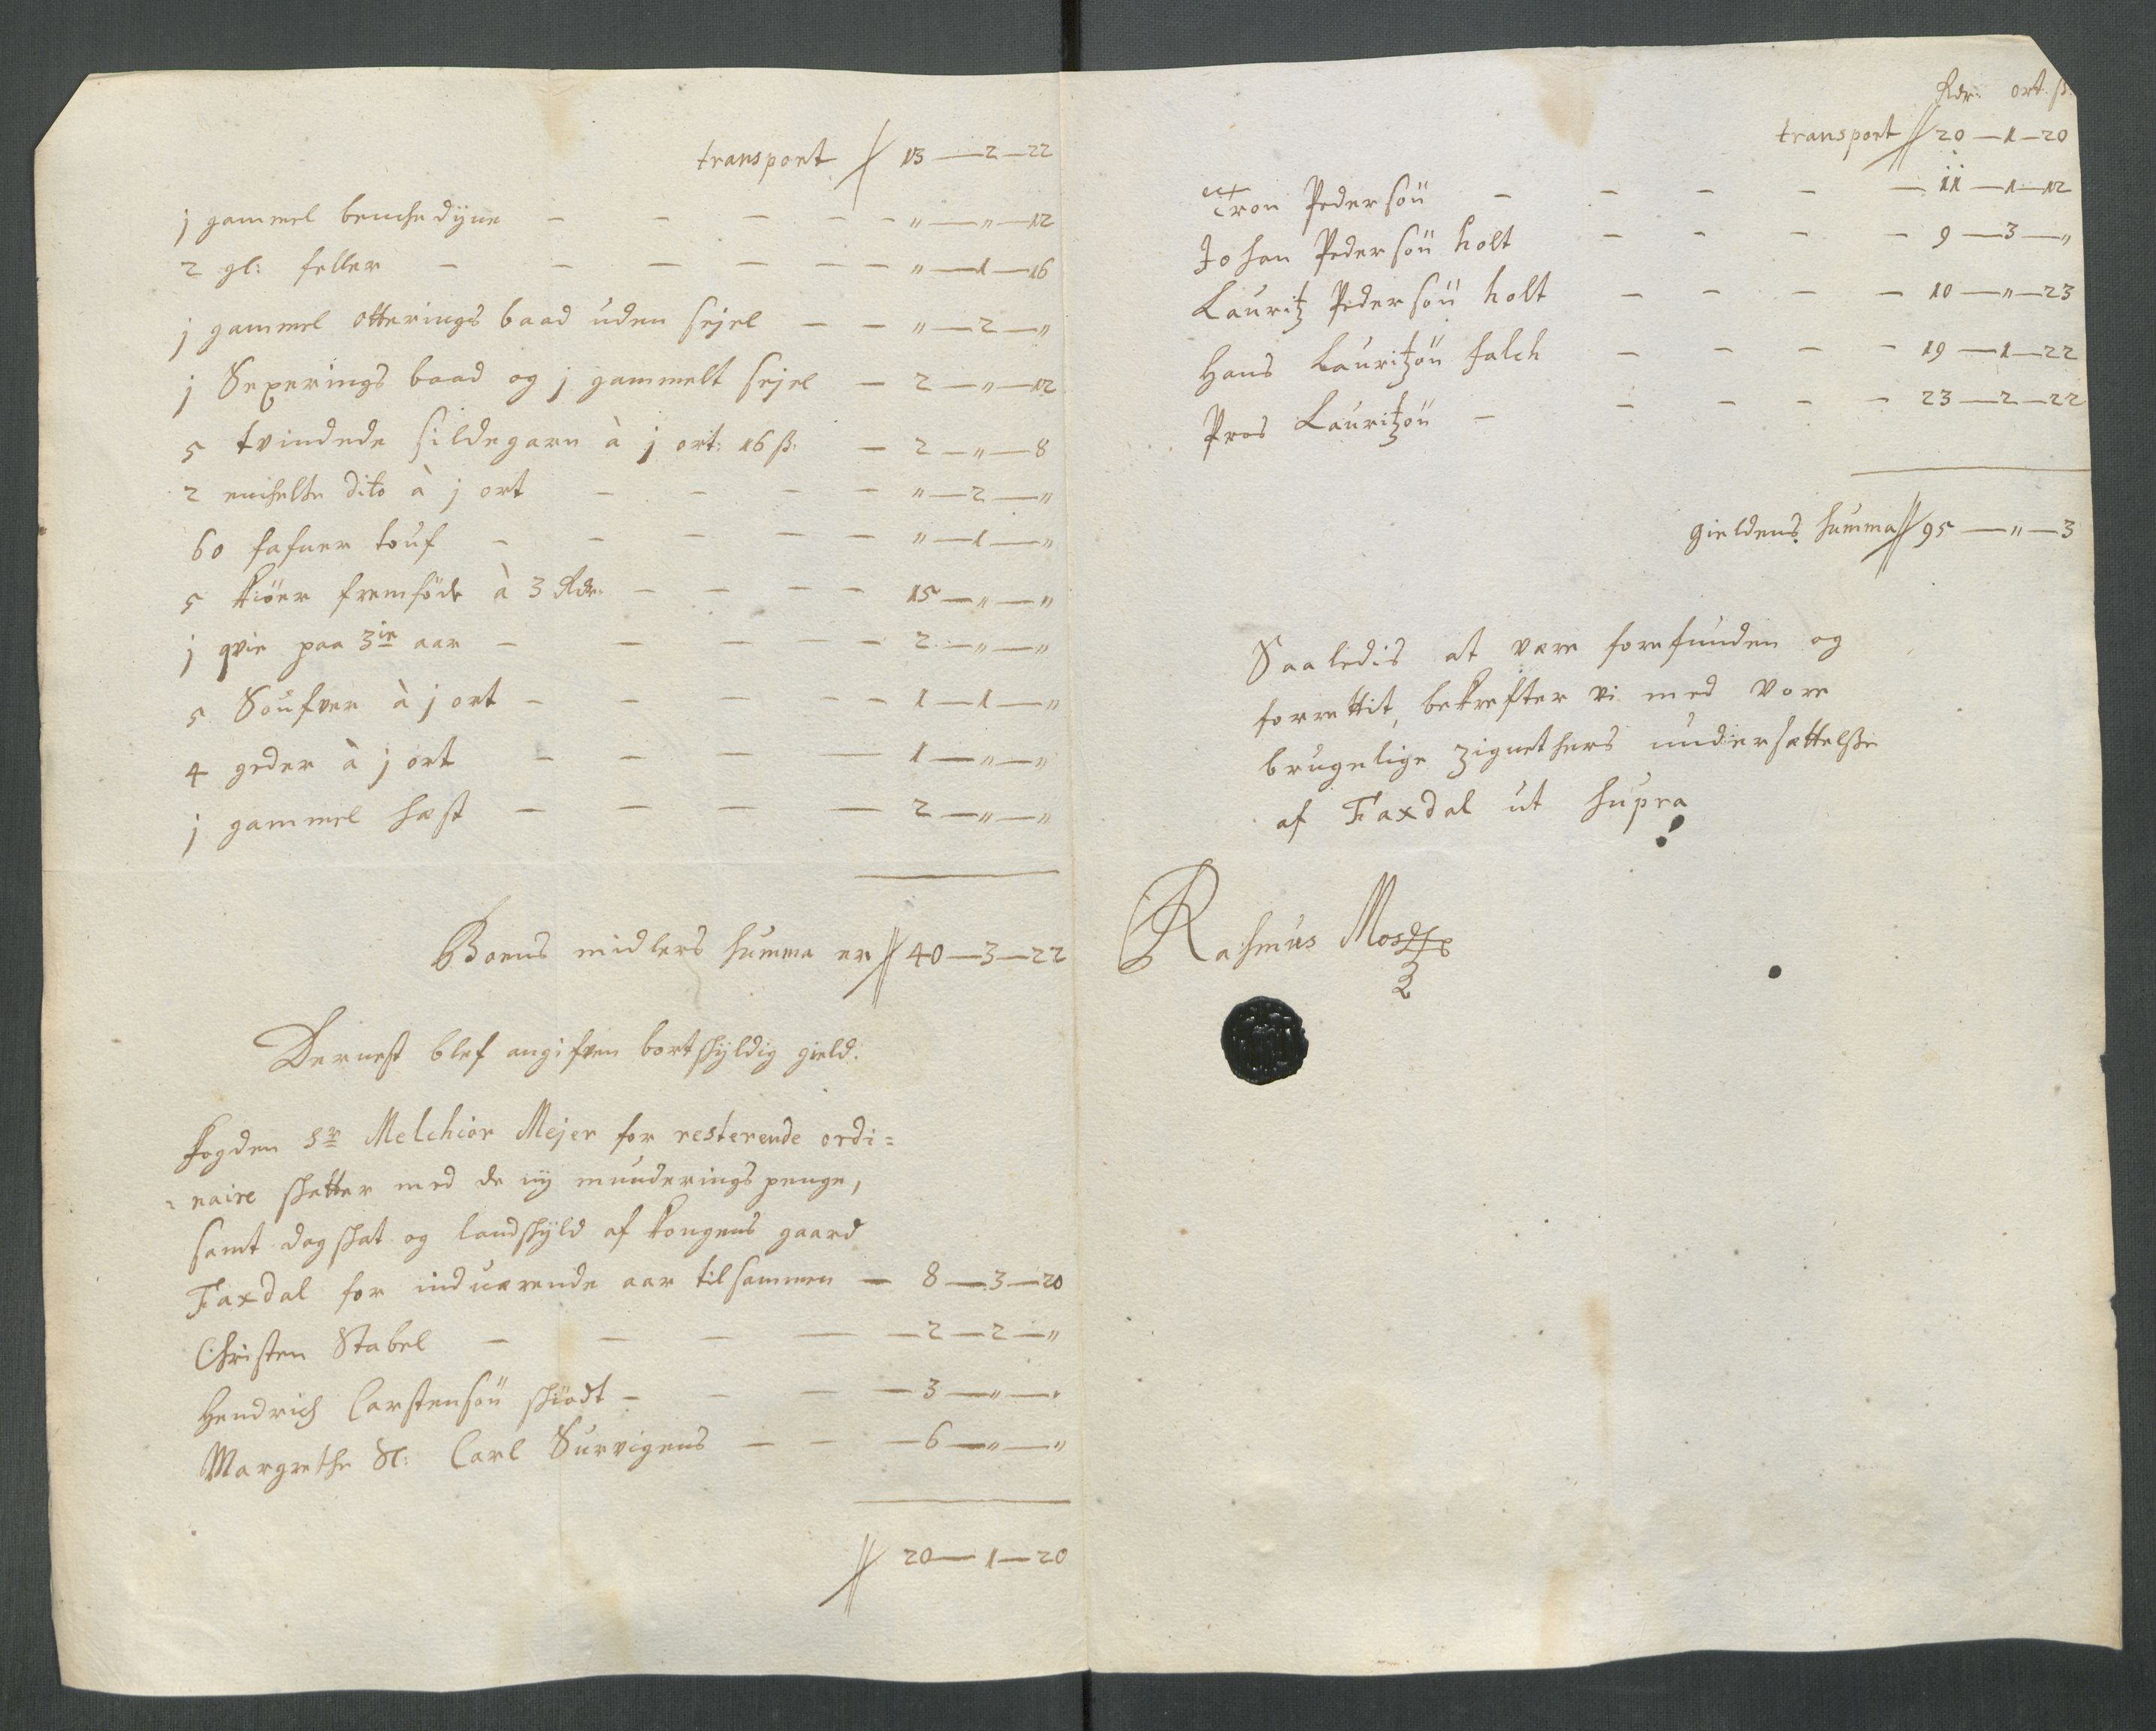 transport // 13 — 2 — 22
j gammel benchedÿne — — — — — " — " — 12
2 gl: feller — — — — — — " — 1 — 16
j gammel otterings baad uden sejel — — " — 2 — "
j Sexerings baad og j gammelt sejel — 2 — " — 12
5 tvindede sildegarn à j ort: 16 ß: — 2 — " — 8
2 enchelte dito à j ort — — — — " — 2 — "
60 fafner touf — — — — — " — 1 — "
5 kiöer fremföde à 3 Rdr: — — — — 15 — " — "
j qvie paa 3ie aar — — — — — 2 — " — "
5 Soufver à j ort — — — — 1 — 1 — "
4 geder à j ort — — — — 1 — " — "
j gammel hæst — — — — 2 — " — "
Boens midlers summa er // 40 — 3 — 22
Dernest blef angifven bortskÿldig gield.
fogden Sr Melchior Mejer for resterende ordi=
=naire skatter med de nÿ munderings penge,
samt dagskat og landskÿld af kongens gaard
Faxdal for indværende aar tilsammen — 8 — 3 — 20
Christen Stabel — — — — — 2 — 2 — "
Hendrich Carstensöu skiödt — — — — 3 — " — "
Margrethe Sl: Carl Survigens — — — 6 — " — "
// 20 — 1 — 20
Rdr: ort. ß:
transport // 20 — 1 — 20
Tron Pedersöu — — — — — 11 — 1 — 12
Johan Pedersöu holt — — — — 9 — 3 — "
Lauritz Pedersöu holt — — — — 10 — " — 23
Hans Lauritzöu falch — — — — 19 — 1 — 22
Pros Lauritzöu — — — — — 23 — 2 — 22
gieldens summa // 95 — " — 3
Saaledis at være forefunden og
forrettit, bekrefter vi med vore
brugelige zignethers undersættelße
af Faxdal ut supra
Rasmus